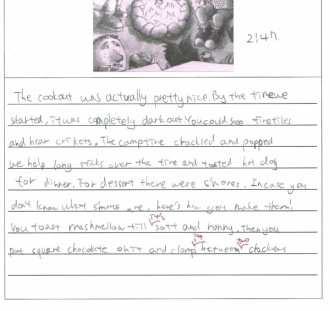 The cookout was actually pretty nice. By the time we
started, it was completely dark out You could see fireflies
and hear crickets. The campfire chackled and popped
we help long sticks over the fire and tosted hot dog
for dinner. For dessert there were s'mores. In case you
don't know what smores are, here's how you make them!
You toast mashmellow till it's soft and runny. Then you
put square chocolate on it and clamp between two chackers